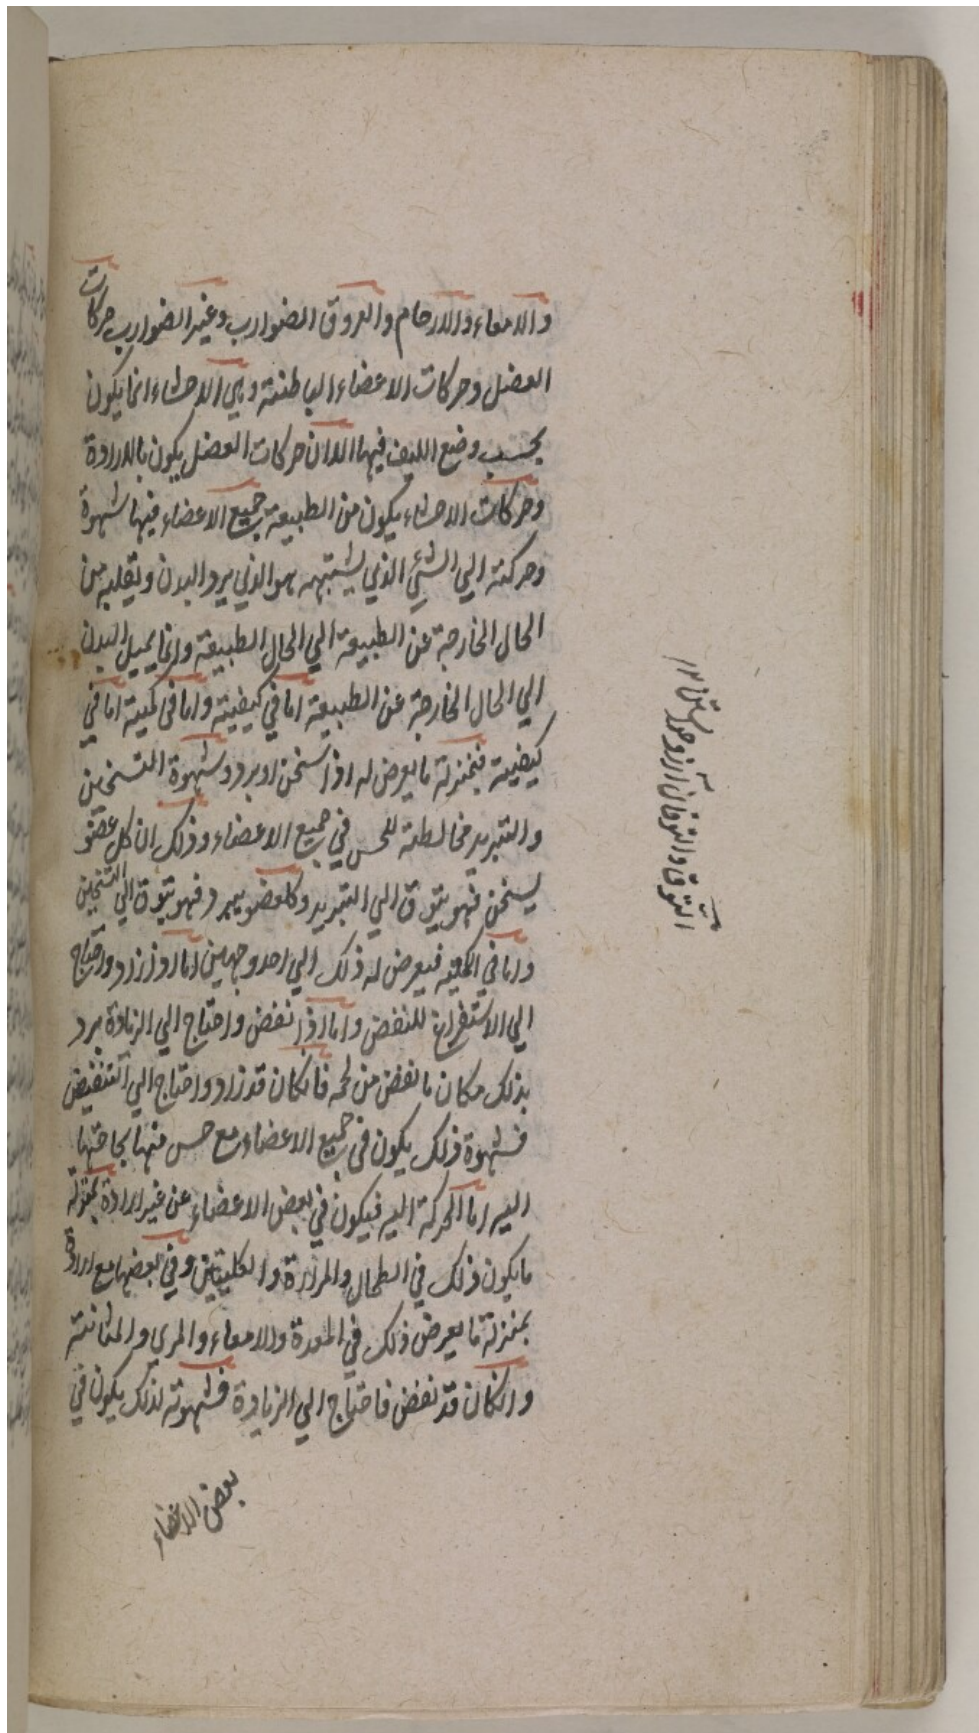 والامعاء والارحام والعروق الضوارب وغير الضوارب حركات
العضل وحركات الاعضاء الباطنة وهي الاحشاء انما يكون
بحسب وضع الليف فيها الا ان حركات العضل يكون بالارادة
وحركات الاحشاء يكون من الطبيعة جميع الاعضاء فيها شهوة
وحركة الي الشئ الذي يشتهيه هو الذي يرد البدن ويقلبه من
الحال الخارجة عن الطبيعة الي الحال الطبيعة وانما يميل البدن
الي الحال الخارجة عن الطبيعة اما في كيفيته واما في كميته اما في
كيفيته فبمنزلة ما يعرض له اذا سخن او برد وشهوة التسخين
والتبريد مخالطة للحس في جميع الاعضاء وذلك ان كل عضو
يسخن فهو يتوق الي التبريد وكلعضو يبرد فهو يتوق الي التسخين
واما في الكمية فيعرض له ذلك الي احد وجهين اما اذا زاد واحتاج
الي الاستفراغ للنقض واما اذا نقض واحتاج الي الزيادة يرد
بذلك مكان ما نقض من لحمه فانكان قد زاد واحتاج الي التنقيض
فشهوة ذلك يكون في جميع الاعضاء مع حس منها بحاجتها
اليه اما الحركة اليه فيكون في بعض الاعضاء عن غير ارادة بمنزلة
ما يكون ذلك في الطحال والمرارة والكليتين وفي بعضها مع ارادة
بمنزلة ما يعرض ذلك في المعدة والامعاء والمري والمثانة
وانكان قد نقض فاحتاج الي الزيادة فشهوته لذلك يكون في
بعض الاعضاء
التوق والتوقان آرزو